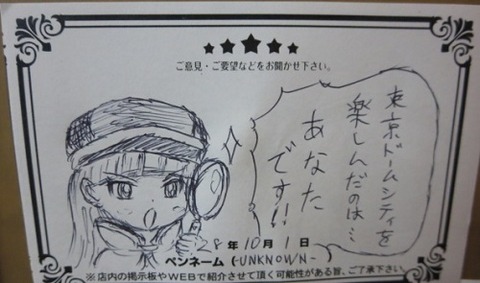 ご意見・ご要望などをお聞かせ下さい。
東京ドームシティを
楽しんだのは…
あなた
です!!
28年10月1日
ペンネーム (-UNKNOWN-
※店内の掲示板やWEBで紹介させて頂く可能性がある旨、ご了承下さい